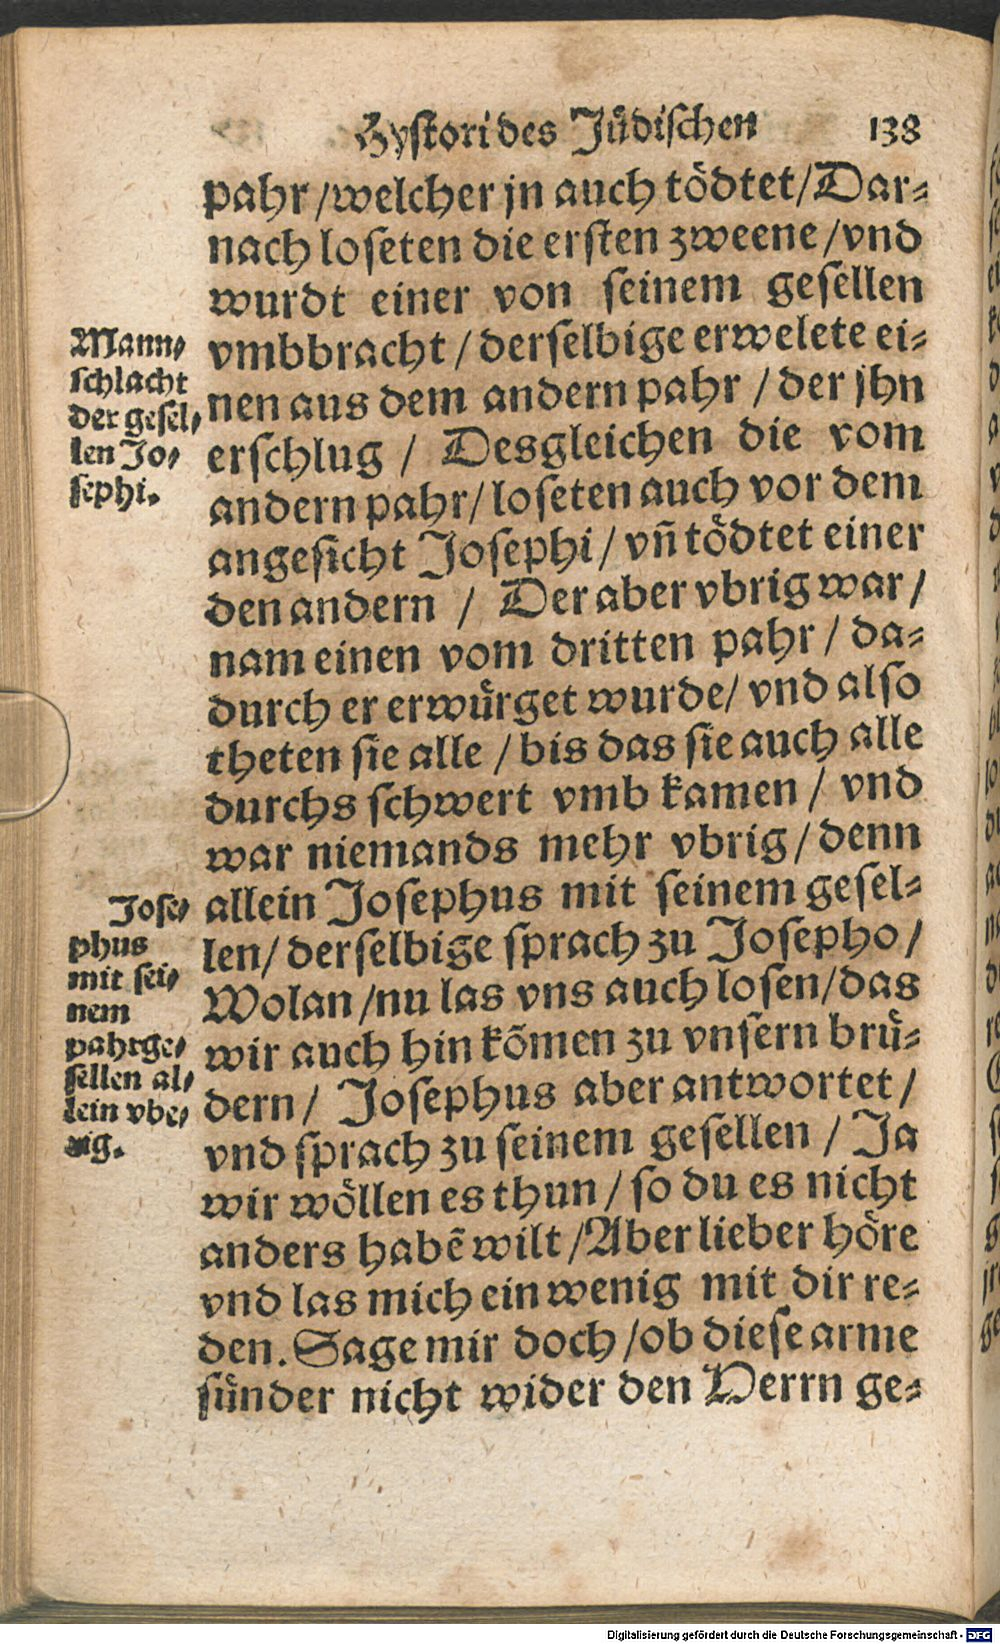 Hystori des Jüdischen 138
pahr / welcher jn auch tödtet / Dar⸗
nach loseten die ersten zweene / vnd
wurdt einer von seinem gesellen
vmbbracht / derselbige erwelete ei⸗
nen aus dem andern pahr / der jhn
erschlug / Desgleichen die vom
andern pahr / loseten auch vor dem
angesicht Josephi / vñ tödtet einer
den andern / Der aber vbrig war /
nam einen vom dritten pahr / da⸗
durch er erwürget wurde / vnd also
theten sie alle / bis das sie auch alle
durchs schwert vmb kamen / vnd
war niemands mehr vbrig / denn
allein Josephus mit seinem gesel⸗
len / derselbige sprach zu Josepho /
Wolan / nu las vns auch losen / das
wir auch hin kõmen zu vnsern brü⸗
dern / Josephus aber antwortet /
vnd sprach zu seinem gesellen / Ja
wir wöllen es thun / so du es nicht
anders habẽ wilt / Aber lieber höre
vnd las mich ein wenig mit dir re⸗
den. Sage mir doch / ob diese arme
sünder nicht wider den Herrn ge⸗
Mann⸗
schlacht
der gesel⸗
len Jo⸗
sephi.
Jose⸗
phus
mit sei⸗
nem
pahrge⸗
sellen al⸗
lein vbe⸗
rig.
Digitalisierung gefördert durch die Deutsche Forschungsgemeinschaft - DFG